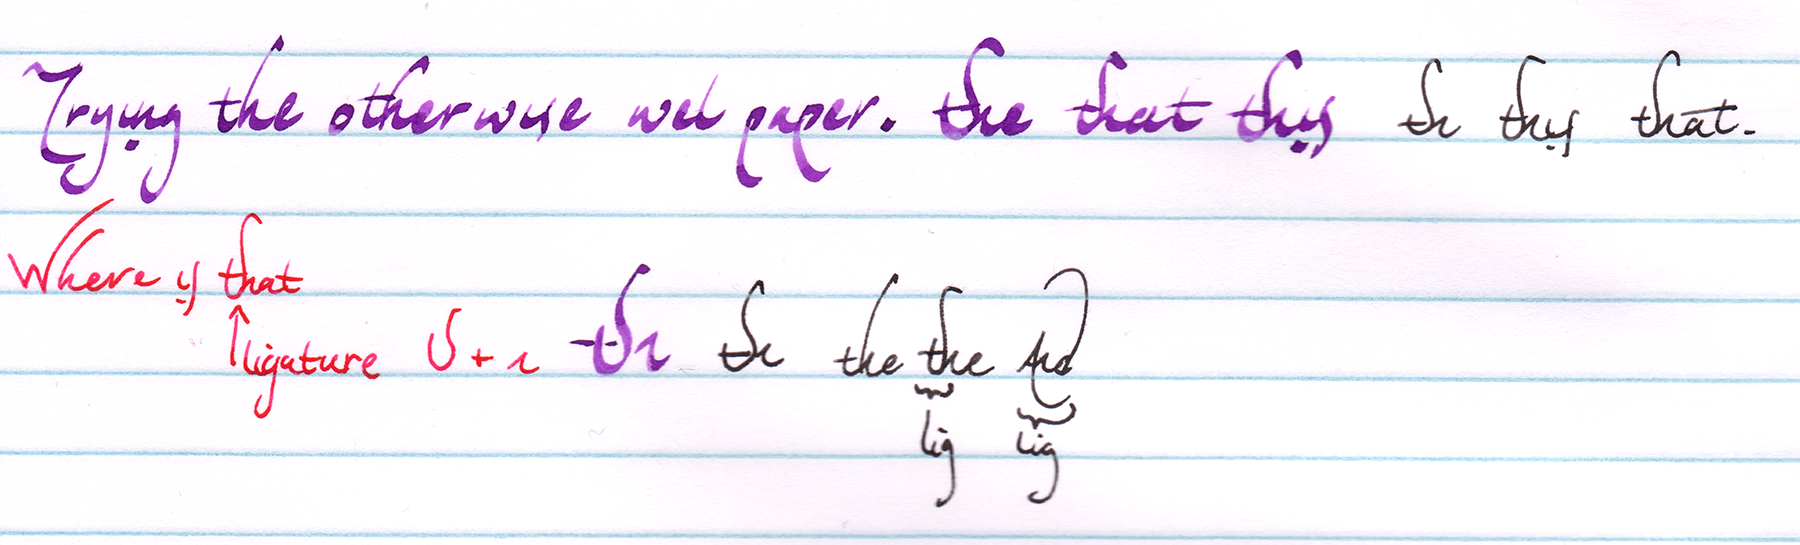 Trying the otherwise wel paper. the that this th this that.
Where is that
↑ligature ʊ + ɿ th th the the
lig lig